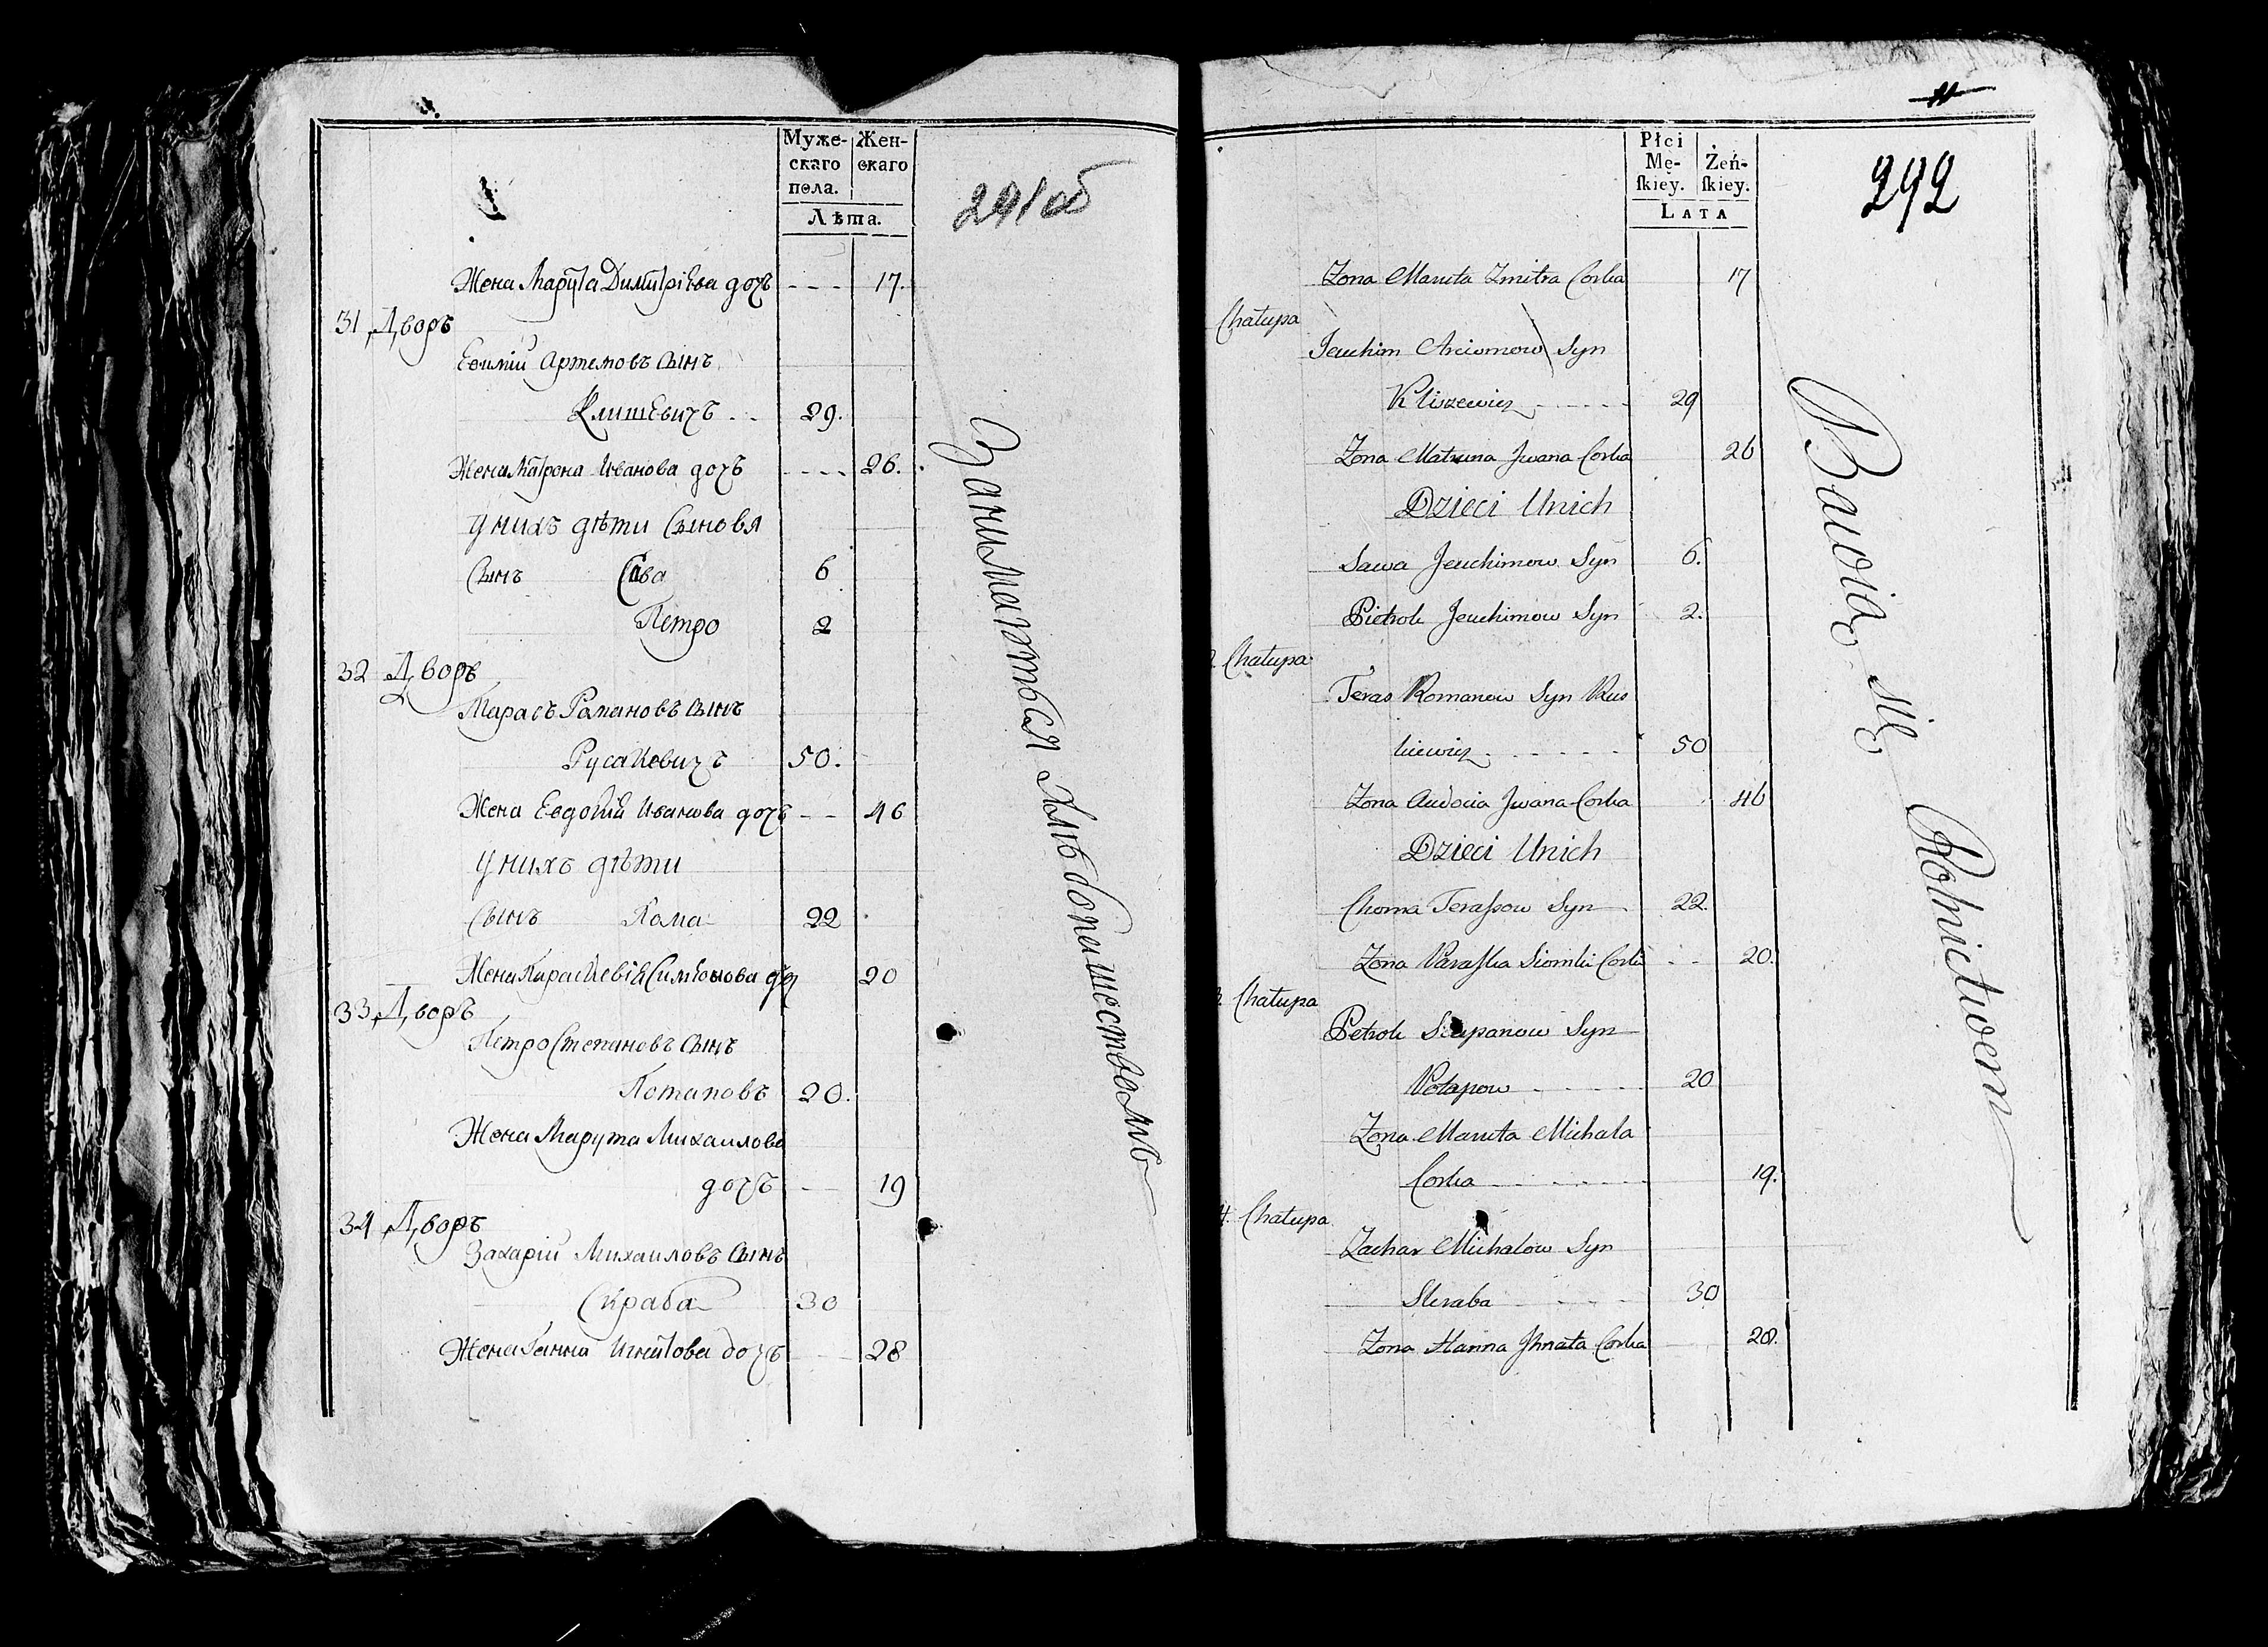 Муже-
скаго
пола.
Жен-
скаго
Лѣта.
291 об
Жена Марута Димитріева дочъ --- 17.
31 Дворъ
Евимій Артемовъ сынъ
Клишевичъ -- 29.
Жена Матрона Иванова дочъ ---- 26.
У нихъ дѣти Сыновя
Сынъ Сава 6
Петро 2
32 Дворъ
Тарасъ Рамановъ сынъ
Русакевичъ 50.
Жена Евдокія Иванова дочъ -- 46
У нихъ дѣти
Сынъ Хома 22
Жена Параскевія Симіонова 20
33 Дворъ
Петро Степановъ сынъ
Потаповъ 20.
Жена Марута Михаилова
дочъ -- 19
34 Дворъ
Захарій Михаиловъ Сынъ
Скраба 30
Жена Ганна Игнатова дочъ 28
Занимаются хлѣбопашествомъ
11
Płci
Mę-
ſkiey.
Żeń-
ſkiey.
LATA
292
Zona Maruta Zmitra Corka 17
Chałupa
Jeuchim Arciomow Syn
Kliszewicz ----- 29
Zona Matruna Jwana Corka 26
Dzieci Unich
Sawa Jeuchimow Syn 6.
Pietrok Jeuchimow Syn 2.
Chałupa
Teras Romanow Syn Rus
kiewicz ----- 50
Zona Audocia Jwana Corka 46
Dzieci Unich
Choma Teraſsow Syn 22.
Zona Paraſka Siomki Corka -- 20.
Chałupa
Petrok Sciepanow Syn
Potapow ---- 20
Zona Maruta Michała
Corka ------ 19.
4. Chałupa
Zachar Michałow Syn
Skraba ---- 30
Zona Hanna Jhnata Corka 28.
Bawią się Rolnictwem